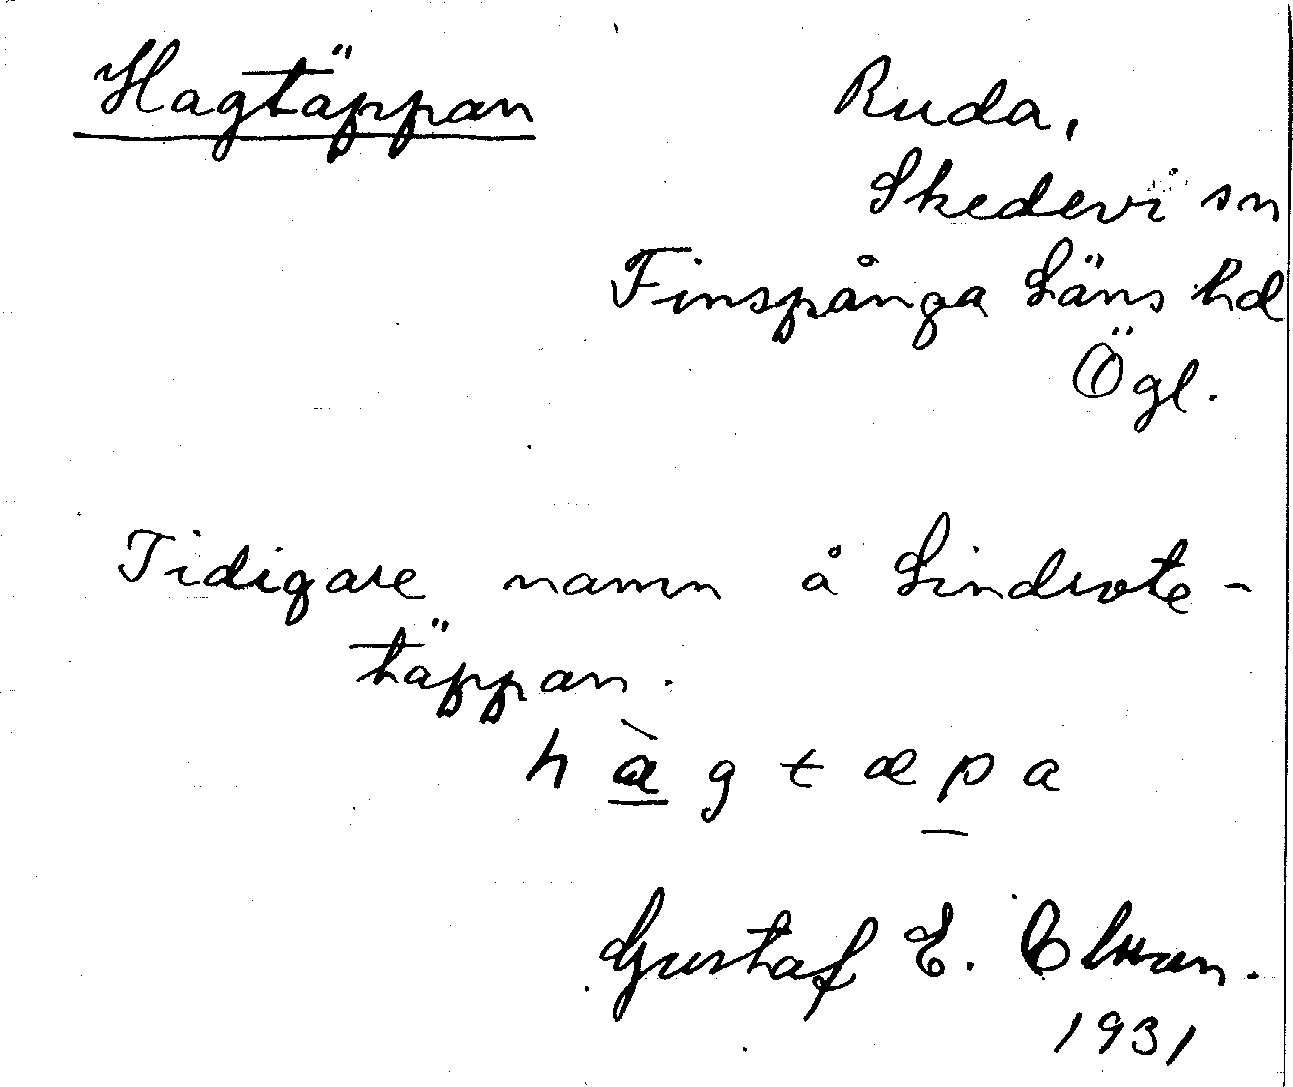 Hagtäppan
Ruda,
Skedevi sn
Finspånga Läns hd
Ögl.
Tidigare namn å Lindrote-
täppan.
hàgtæpa
Gustaf E.
1931